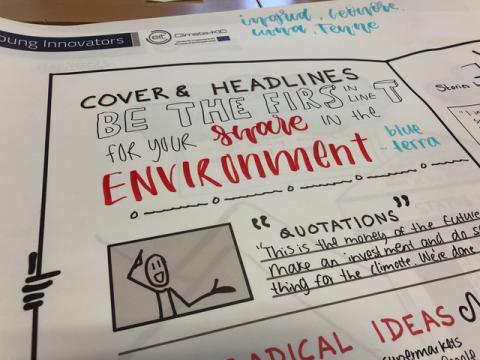 oung Innovators
eit Climate-KIC
COVER & HEADLINES
BE THE FIRST
IN LINE
FOR YOUR share IN the
ENVIRONMENT
blue
- terra
"QUOTATIONS"
"This is the money of the future
make an investment and do so
thing for the climate. We're done
RADICAL IDEAS
supermarkets
Stories